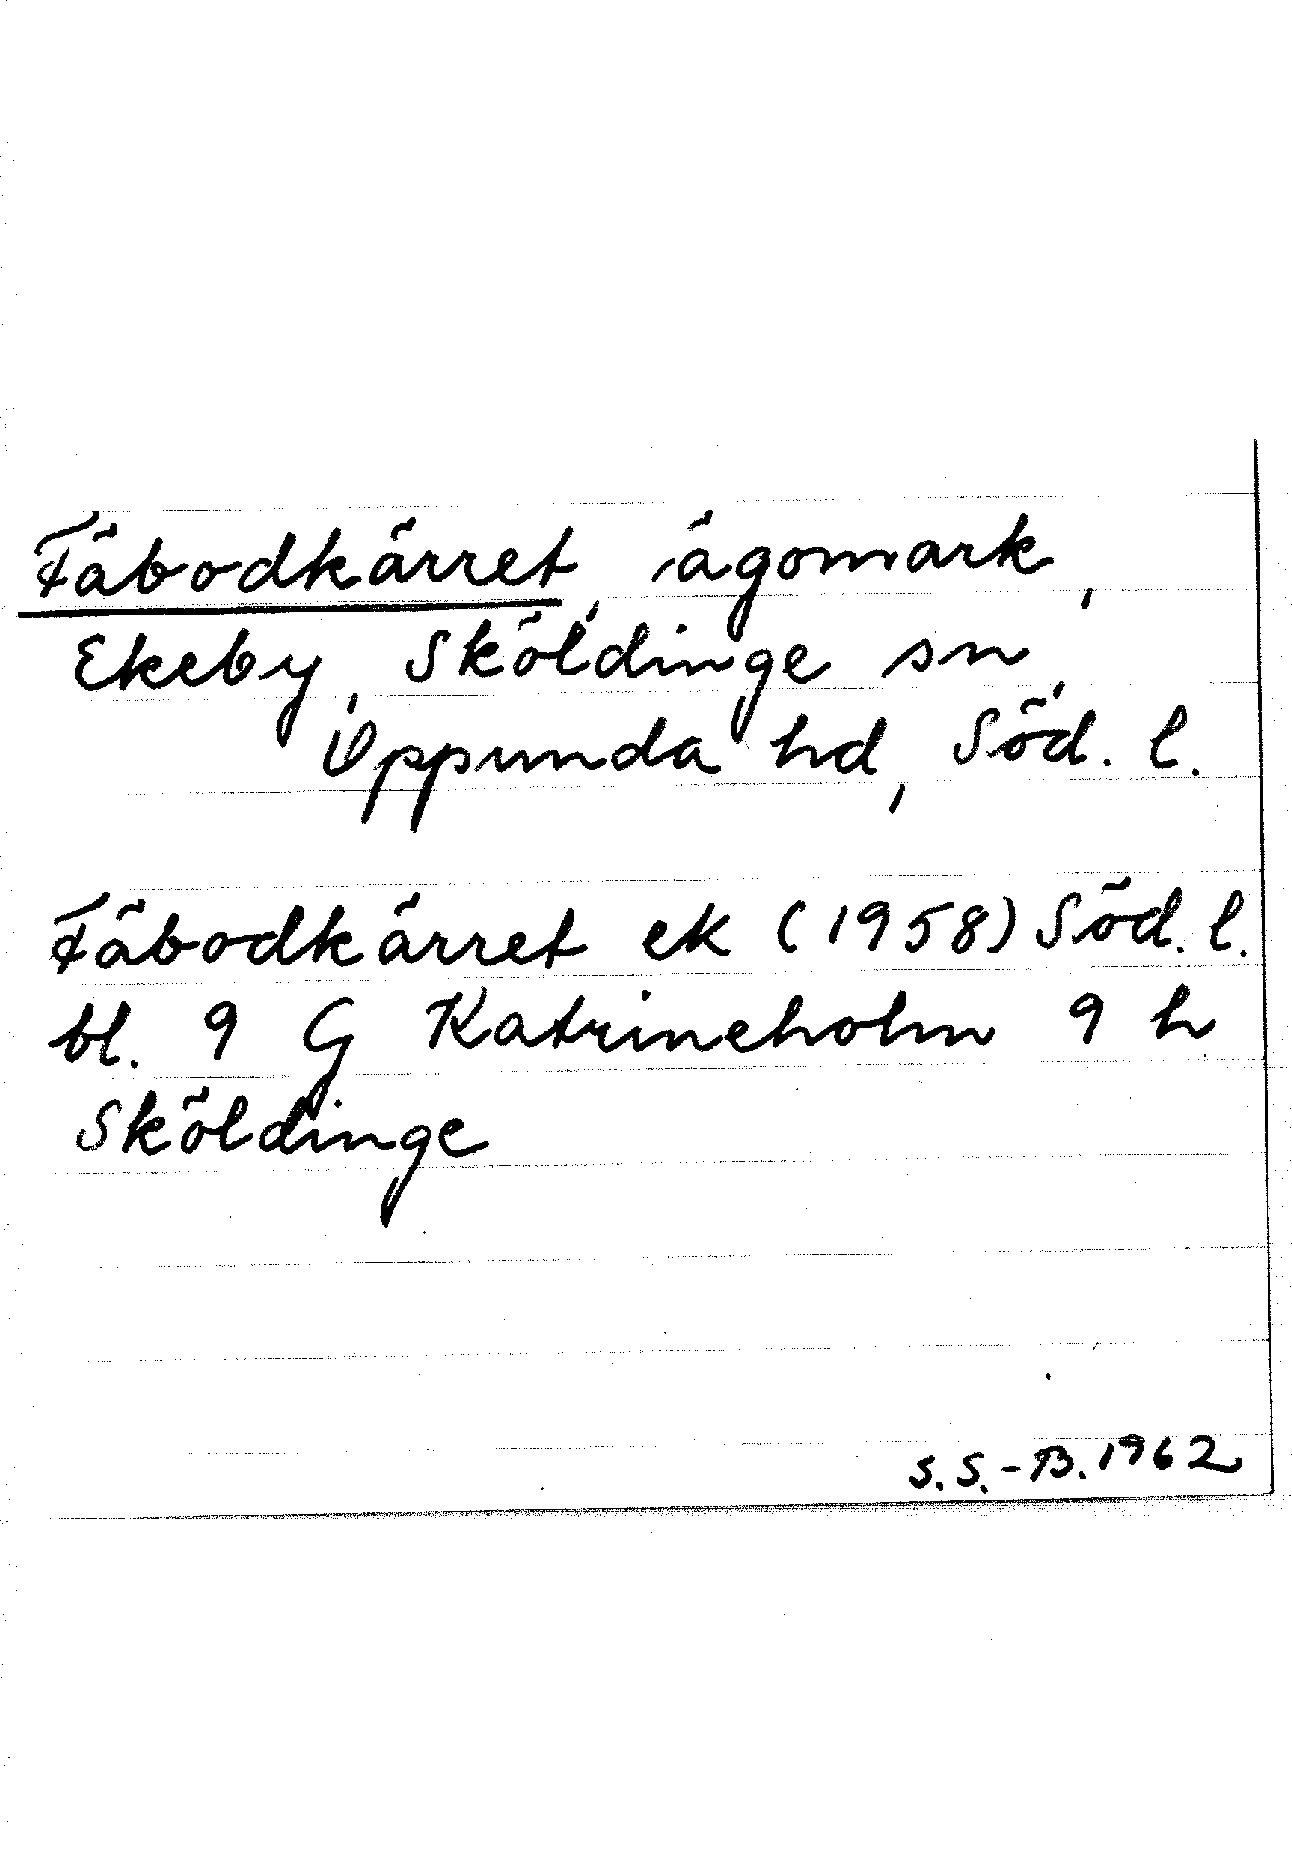 Fäbodkärret, ägomark,
Ekeby, Sköldinge sn,
Oppunda hd, Söd. l.
Fäbodkärret ek (1958) Söd. l.
bl. 9 G Katrineholm 9 h
Sköldinge
S. S.-B. 1962